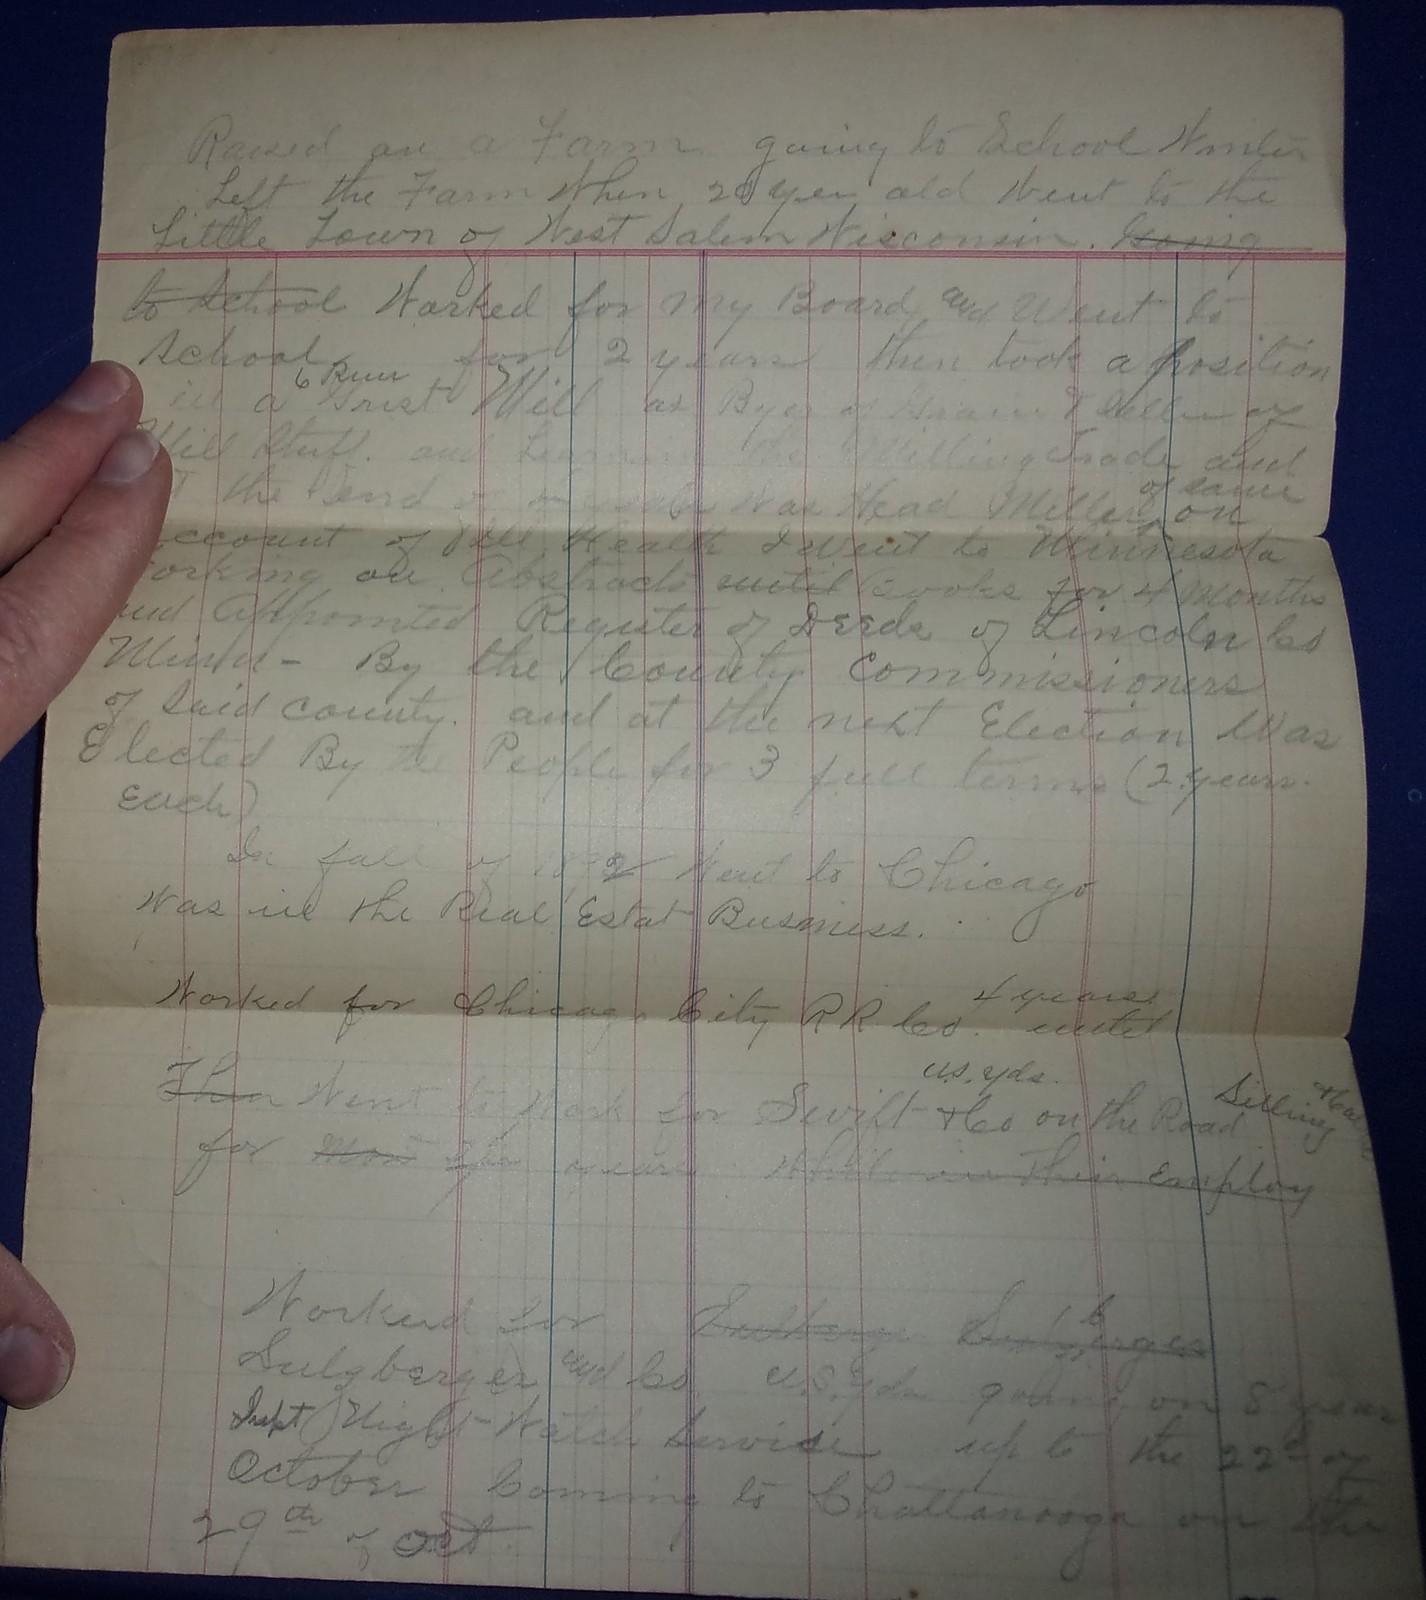 Raised on a Farm going to School Winter
Left the Farm When 20 yer old Went to the
Little Town of West Salem Wisconsin. Going
to School Worked for my Board and Went to
School for 2 years then took a position
6 Run
in a Grist Mill as Byer of Grain & Seller of
Mill Stuff. and Learning the Milling Trade and
the End of years Was Head Miller of same on
account of Ill Health I went to Minnesota
Working on Abstracts until Books for 4 Months
and Appointed Register of Deeds of Lincoln Co
Minn- By the County Commissioners
of Said county. and at the next Election Was
Elected By the People for 3 full terms (2 years.
Each)
In fall of 1892 Went to Chicago
Was in the Real Estat Business.
Worked for Chicago City RR Co. 4 years until
U.S. Yds.
Then Went to Work for Swift & Co on the Road Selling
for years While in Their Employ
Worked for
Sulzberger and Co. U.S. Yds going on 8 year
Supt Night Watch Service up to the 22d of
October Coming to Chattanooga on the
29th of Oct.